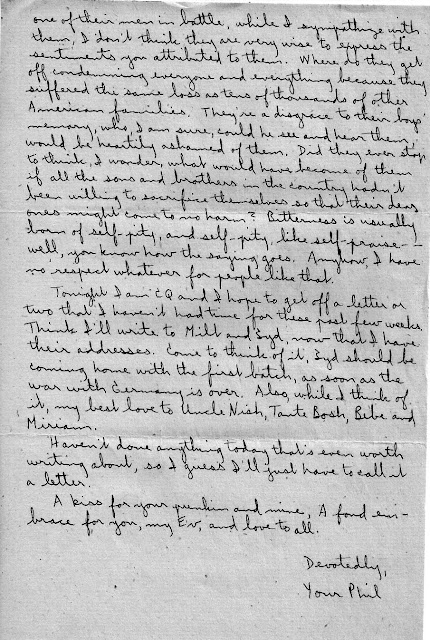 one of their men in battle, while I sympathize with
them, I don't think they are very wise to express the
sentiments you attributed to them. Where do they get
off condemning everyone and everything because they
suffered the same loss as tens of thousands of other
American families. They're a disgrace to their boys'
memory, who, I am sure, could he see and hear them,
would be heartily ashamed of them. Did they ever stop
to think, I wonder, what would have become of them
if all the sons and brothers in the country hadn't
been willing to sacrifice themselves so that their dear
ones might come to no harm? Bitterness is usually
born of self-pity, and self-pity, like self-praise--
well, you know how the saying goes. Anyhow, I have
no respect whatever for people like that.
Tonight I am CQ and I hope to get off a letter or
two that I haven't had time for these past few weeks.
Think I'll write to Milt and Syd, now that I have
their addresses. Come to think of it, Syd should be
coming home with the first batch, as soon as the
war with Germany is over. Also, while I think of
it, my best love to Uncle Nish, Tante Bosh, Bebe and
Miriam.
Haven't done anything today that's even worth
writing about, so I guess I'll just have to call it
a letter.
A kiss for your punkin and mine, A fond em-
brace for you, my Ev, and love to all.
Devotedly,
Your Phil